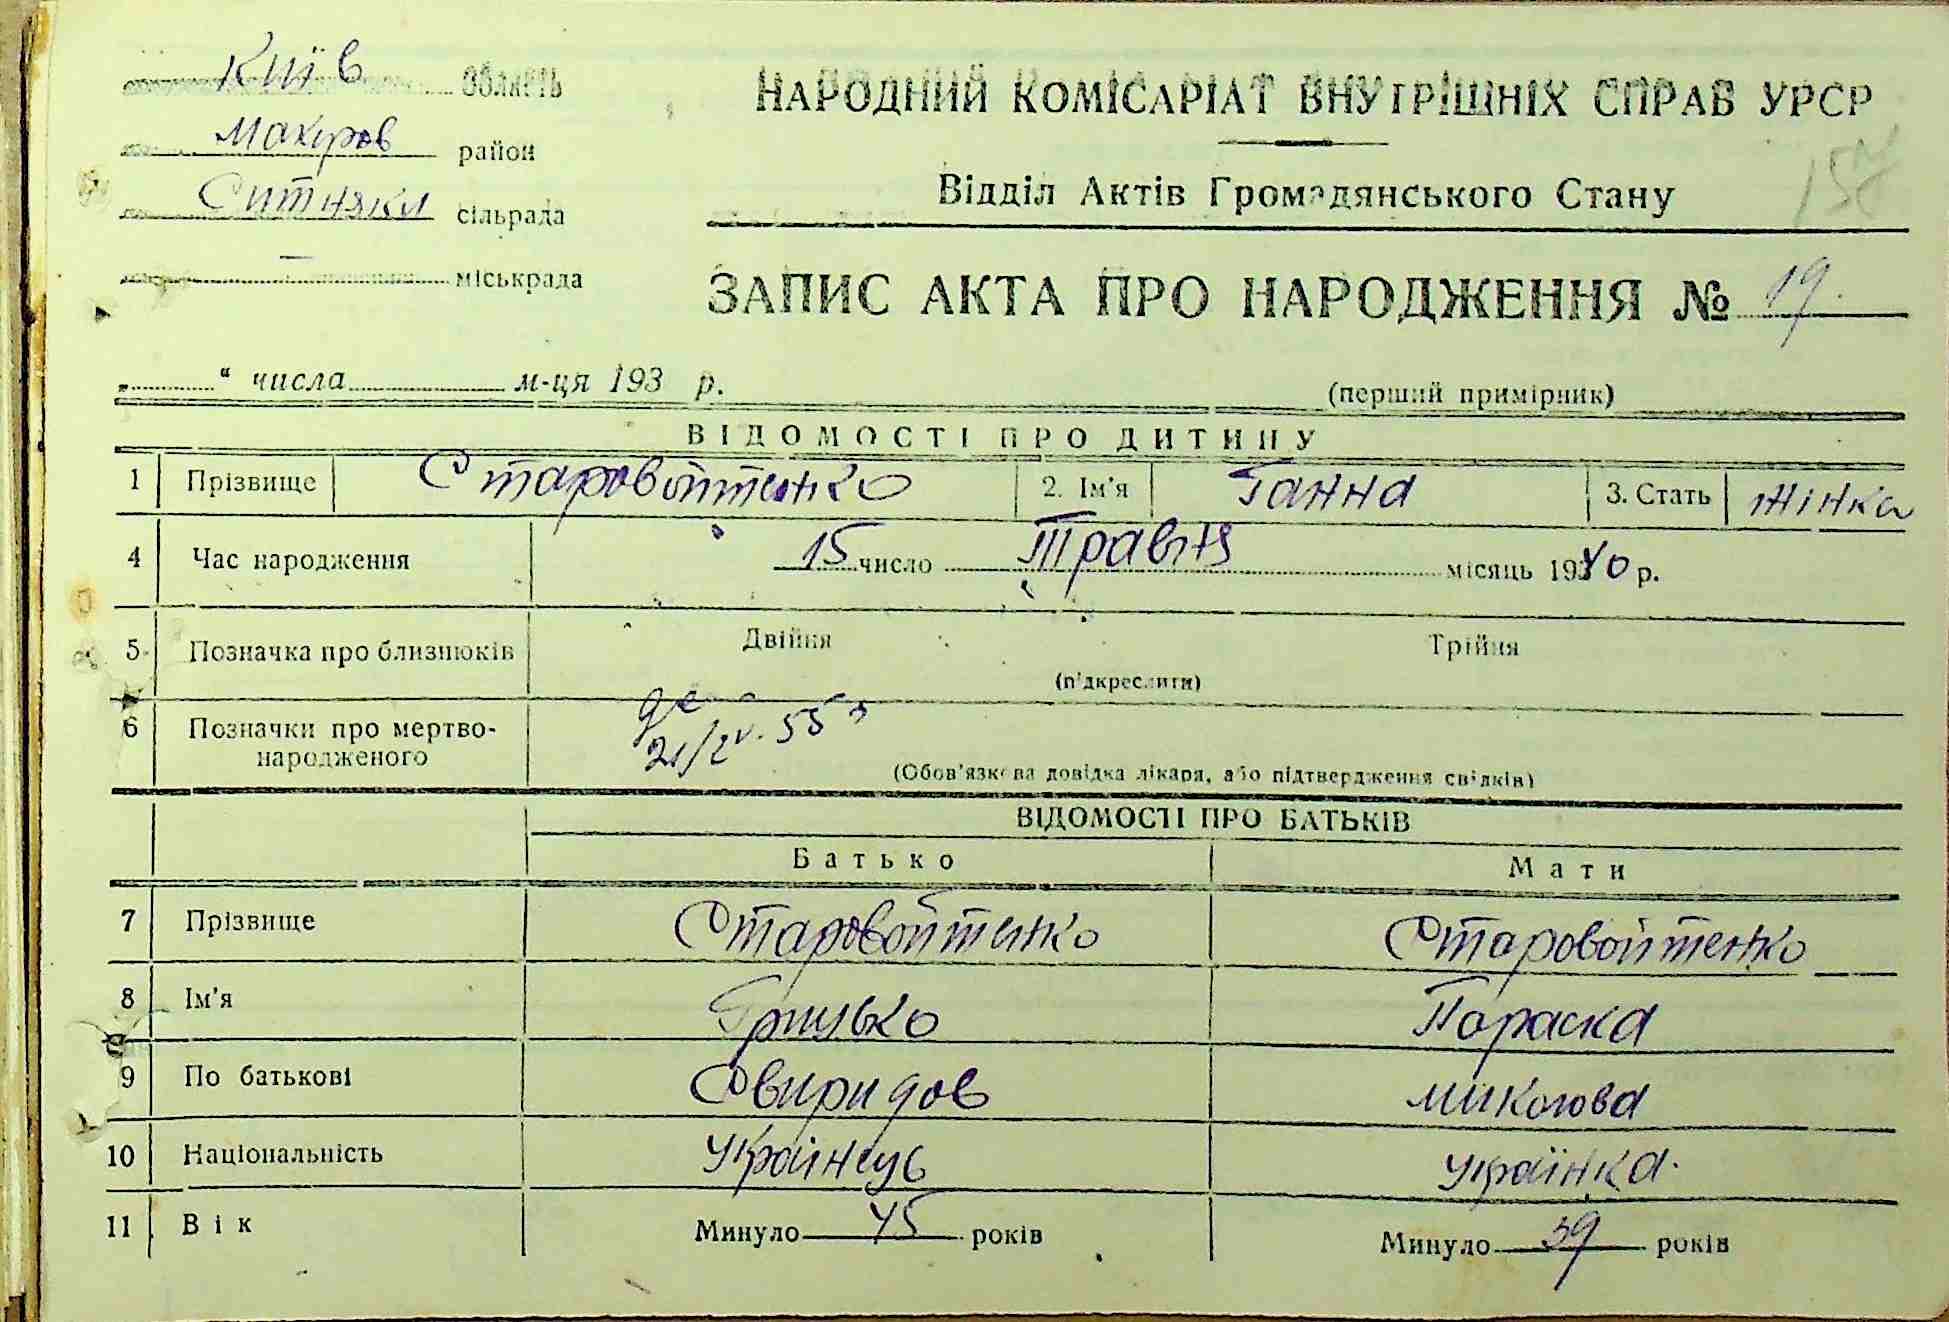 Київ область
Макаров район
Ситняки сільрада
міськрада
НАРОДНИЙ КОМІСАРІАТ ВНУТРІШНІХ СПРАВ УРСР
Відділ Актів Громадянського Стану
157
ЗАПИС АКТА ПРО НАРОДЖЕННЯ № 19.
„ “ числа м-ця 193 р.
(перший примірник)
ВІДОМОСТІ ПРО ДИТИНУ
1 Прізвище Старовойтенко 2. Ім'я Ганна 3. Стать жінка
4 Час народження 15 число Травня місяць 1940 р.
5 Позначка про близнюків Двійня Трійня
(підкреслити)
6 Позначки про мертво-
народженого
(Обов'язкова довідка лікаря, або підтвердження свідків)
ВІДОМОСТІ ПРО БАТЬКІВ
Батько Мати
7 Прізвище Старовойтенко Старовойтенко
8 Ім'я Грицько Параска
9 По батькові Свиридов Миколова
10 Національність Українець Українка.
11 Вік Минуло 45 років Минуло 39 років